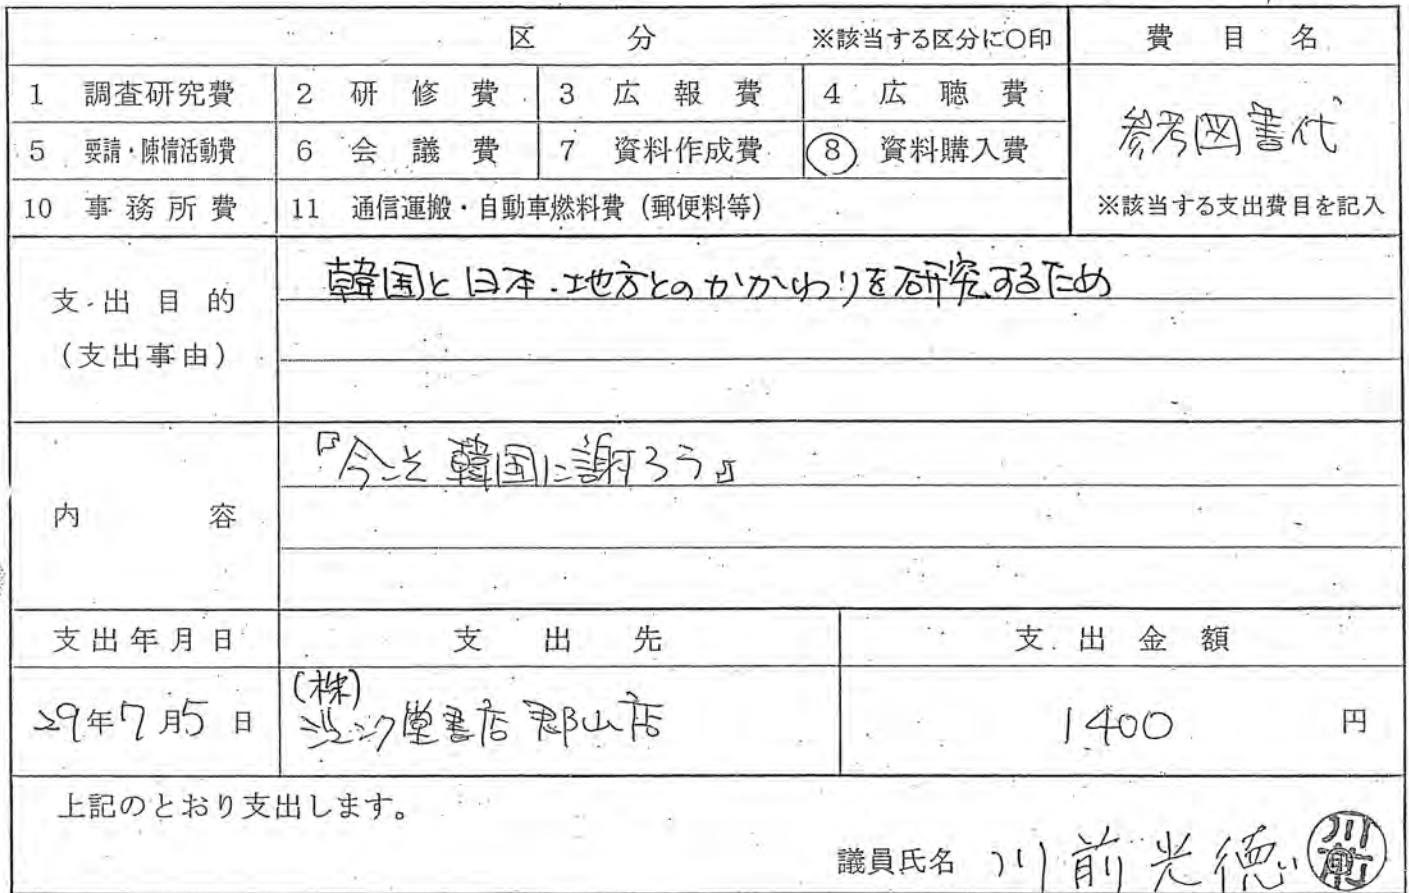 区 分 ※該当する区分に○印 費 目 名
1 調査研究費 2 研 修 費 3 広 報 費 4 広 聴 費
参考図書代
5 要請・陳情活動費 6 会 議 費 7 資料作成費 8 資料購入費
10 事 務 所 費 11 通信運搬・自動車燃料費(郵便料等) ※該当する支出費目を記入
支 出 目 的
(支出事由)
韓国と日本・地方とのかかわりを研究するため
内 容
『今こそ韓国に謝ろう』
支 出 年 月 日 支 出 先 支 出 金 額
29年7月5日 (株)
ジュンク堂書店 郡山店 1400 円
上記のとおり支出します。
議員氏名 川前光徳 川前